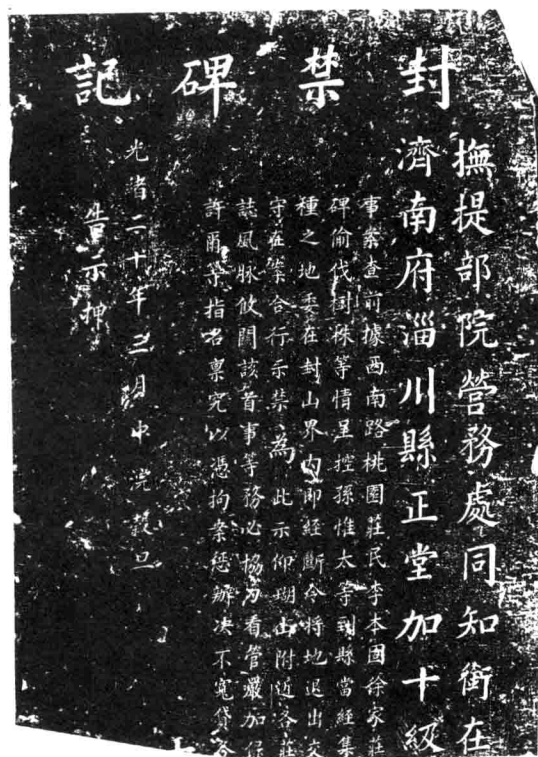 封禁碑記
撫提部院營務處同知銜在
濟南府淄川縣正堂加十級
事案查前據西南路桃園莊民李本固徐家莊
碑偷伐樹株等情呈控孫惟太等到縣當經集
種之地委在封山界內即經斷令將地退出交
守在案合行示禁為此示仰瑚山附近各莊
誌風脉攸關該首事等務必協力看管嚴加保
許爾等指名稟究以憑拘案懲辦决不寬貸各
光緒二十年三月中浣穀旦
告示押